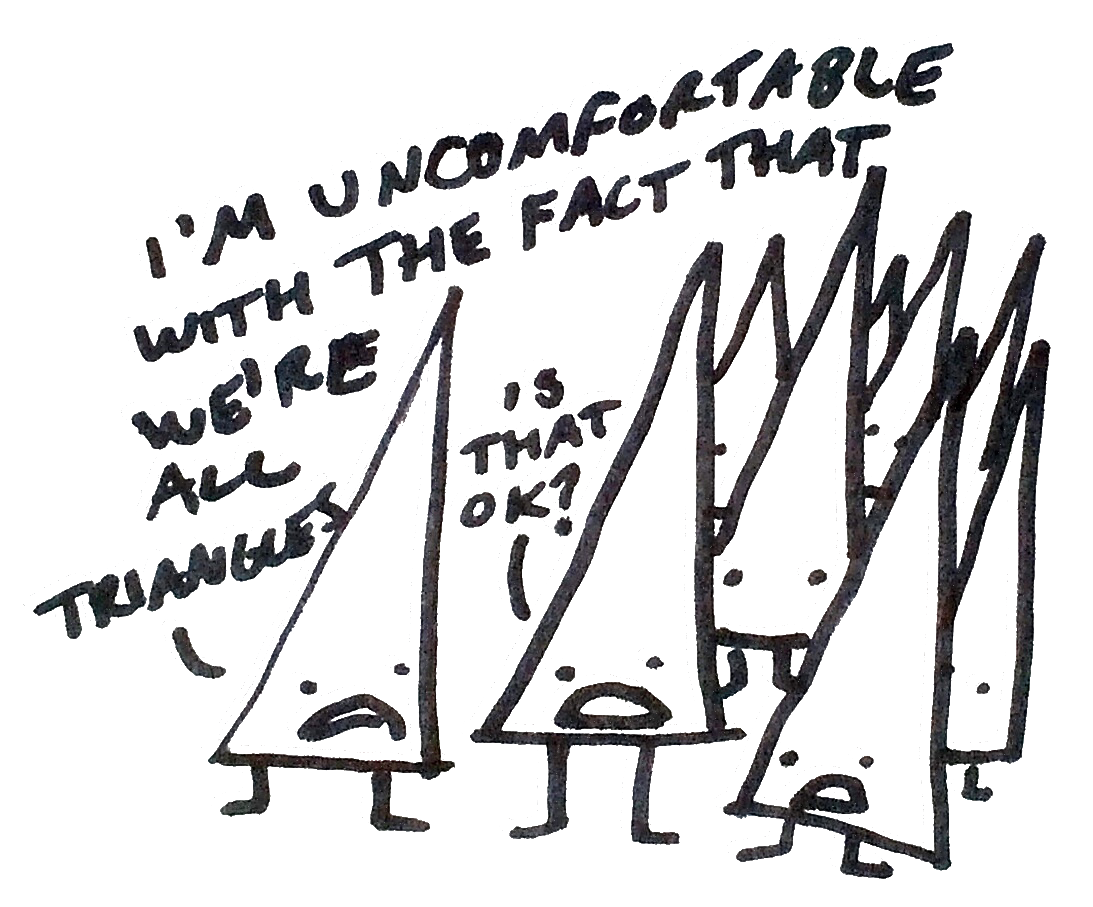 I'M UNCOMFORTABLE
WITH THE FACT THAT
WE'RE
ALL
TRIANGLES
IS
THAT
OK?